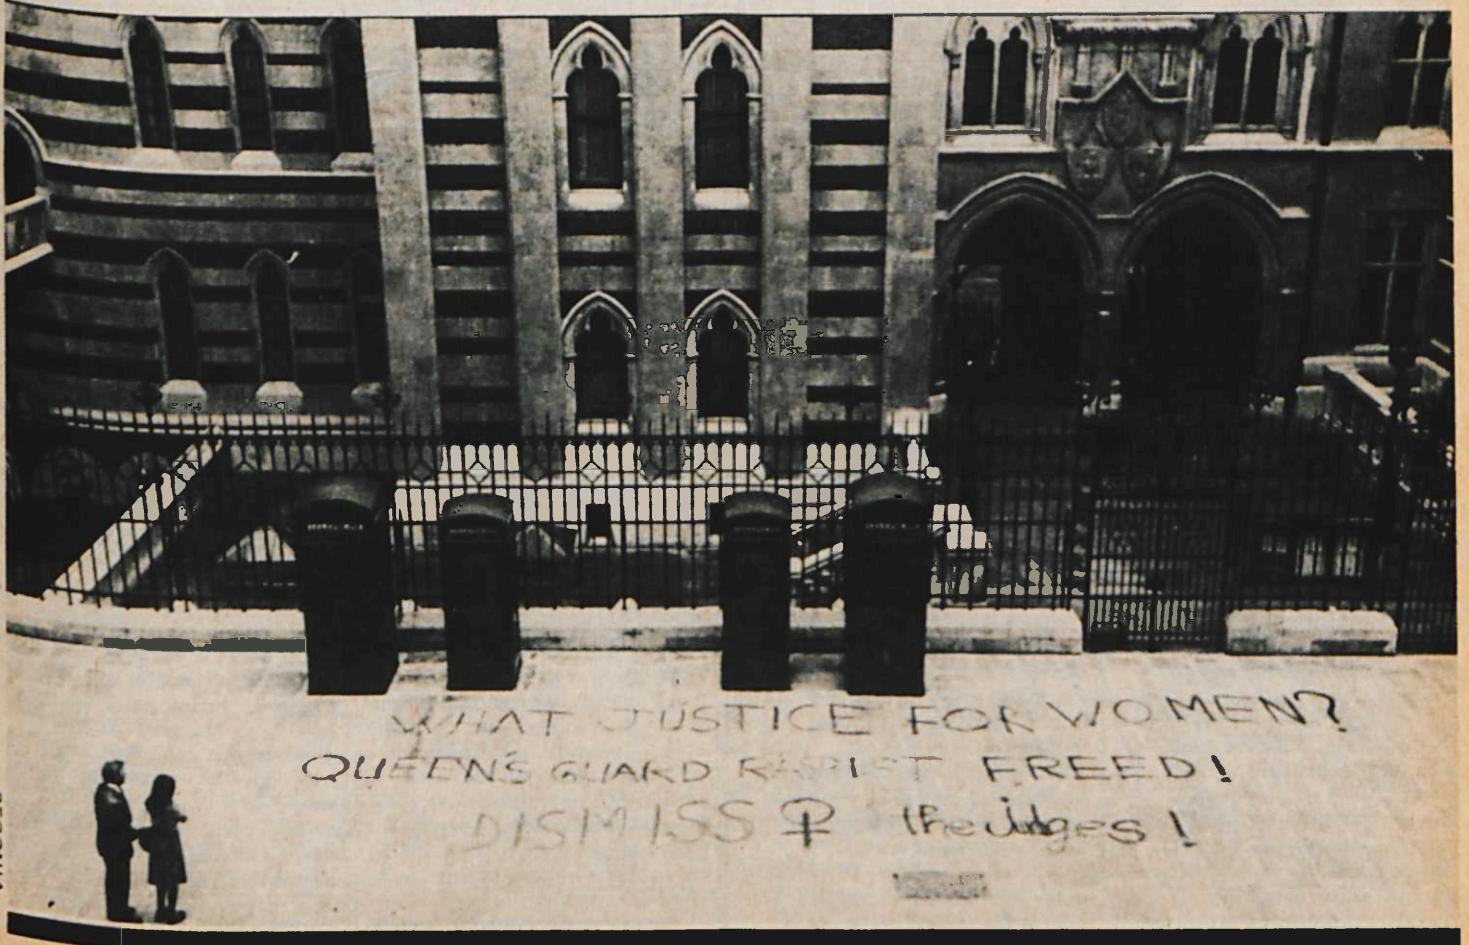 WHAT JUSTICE FOR WOMEN?
QUEEN'S GUARD RAPIST FREED!
DISMISS ♀ the judges!